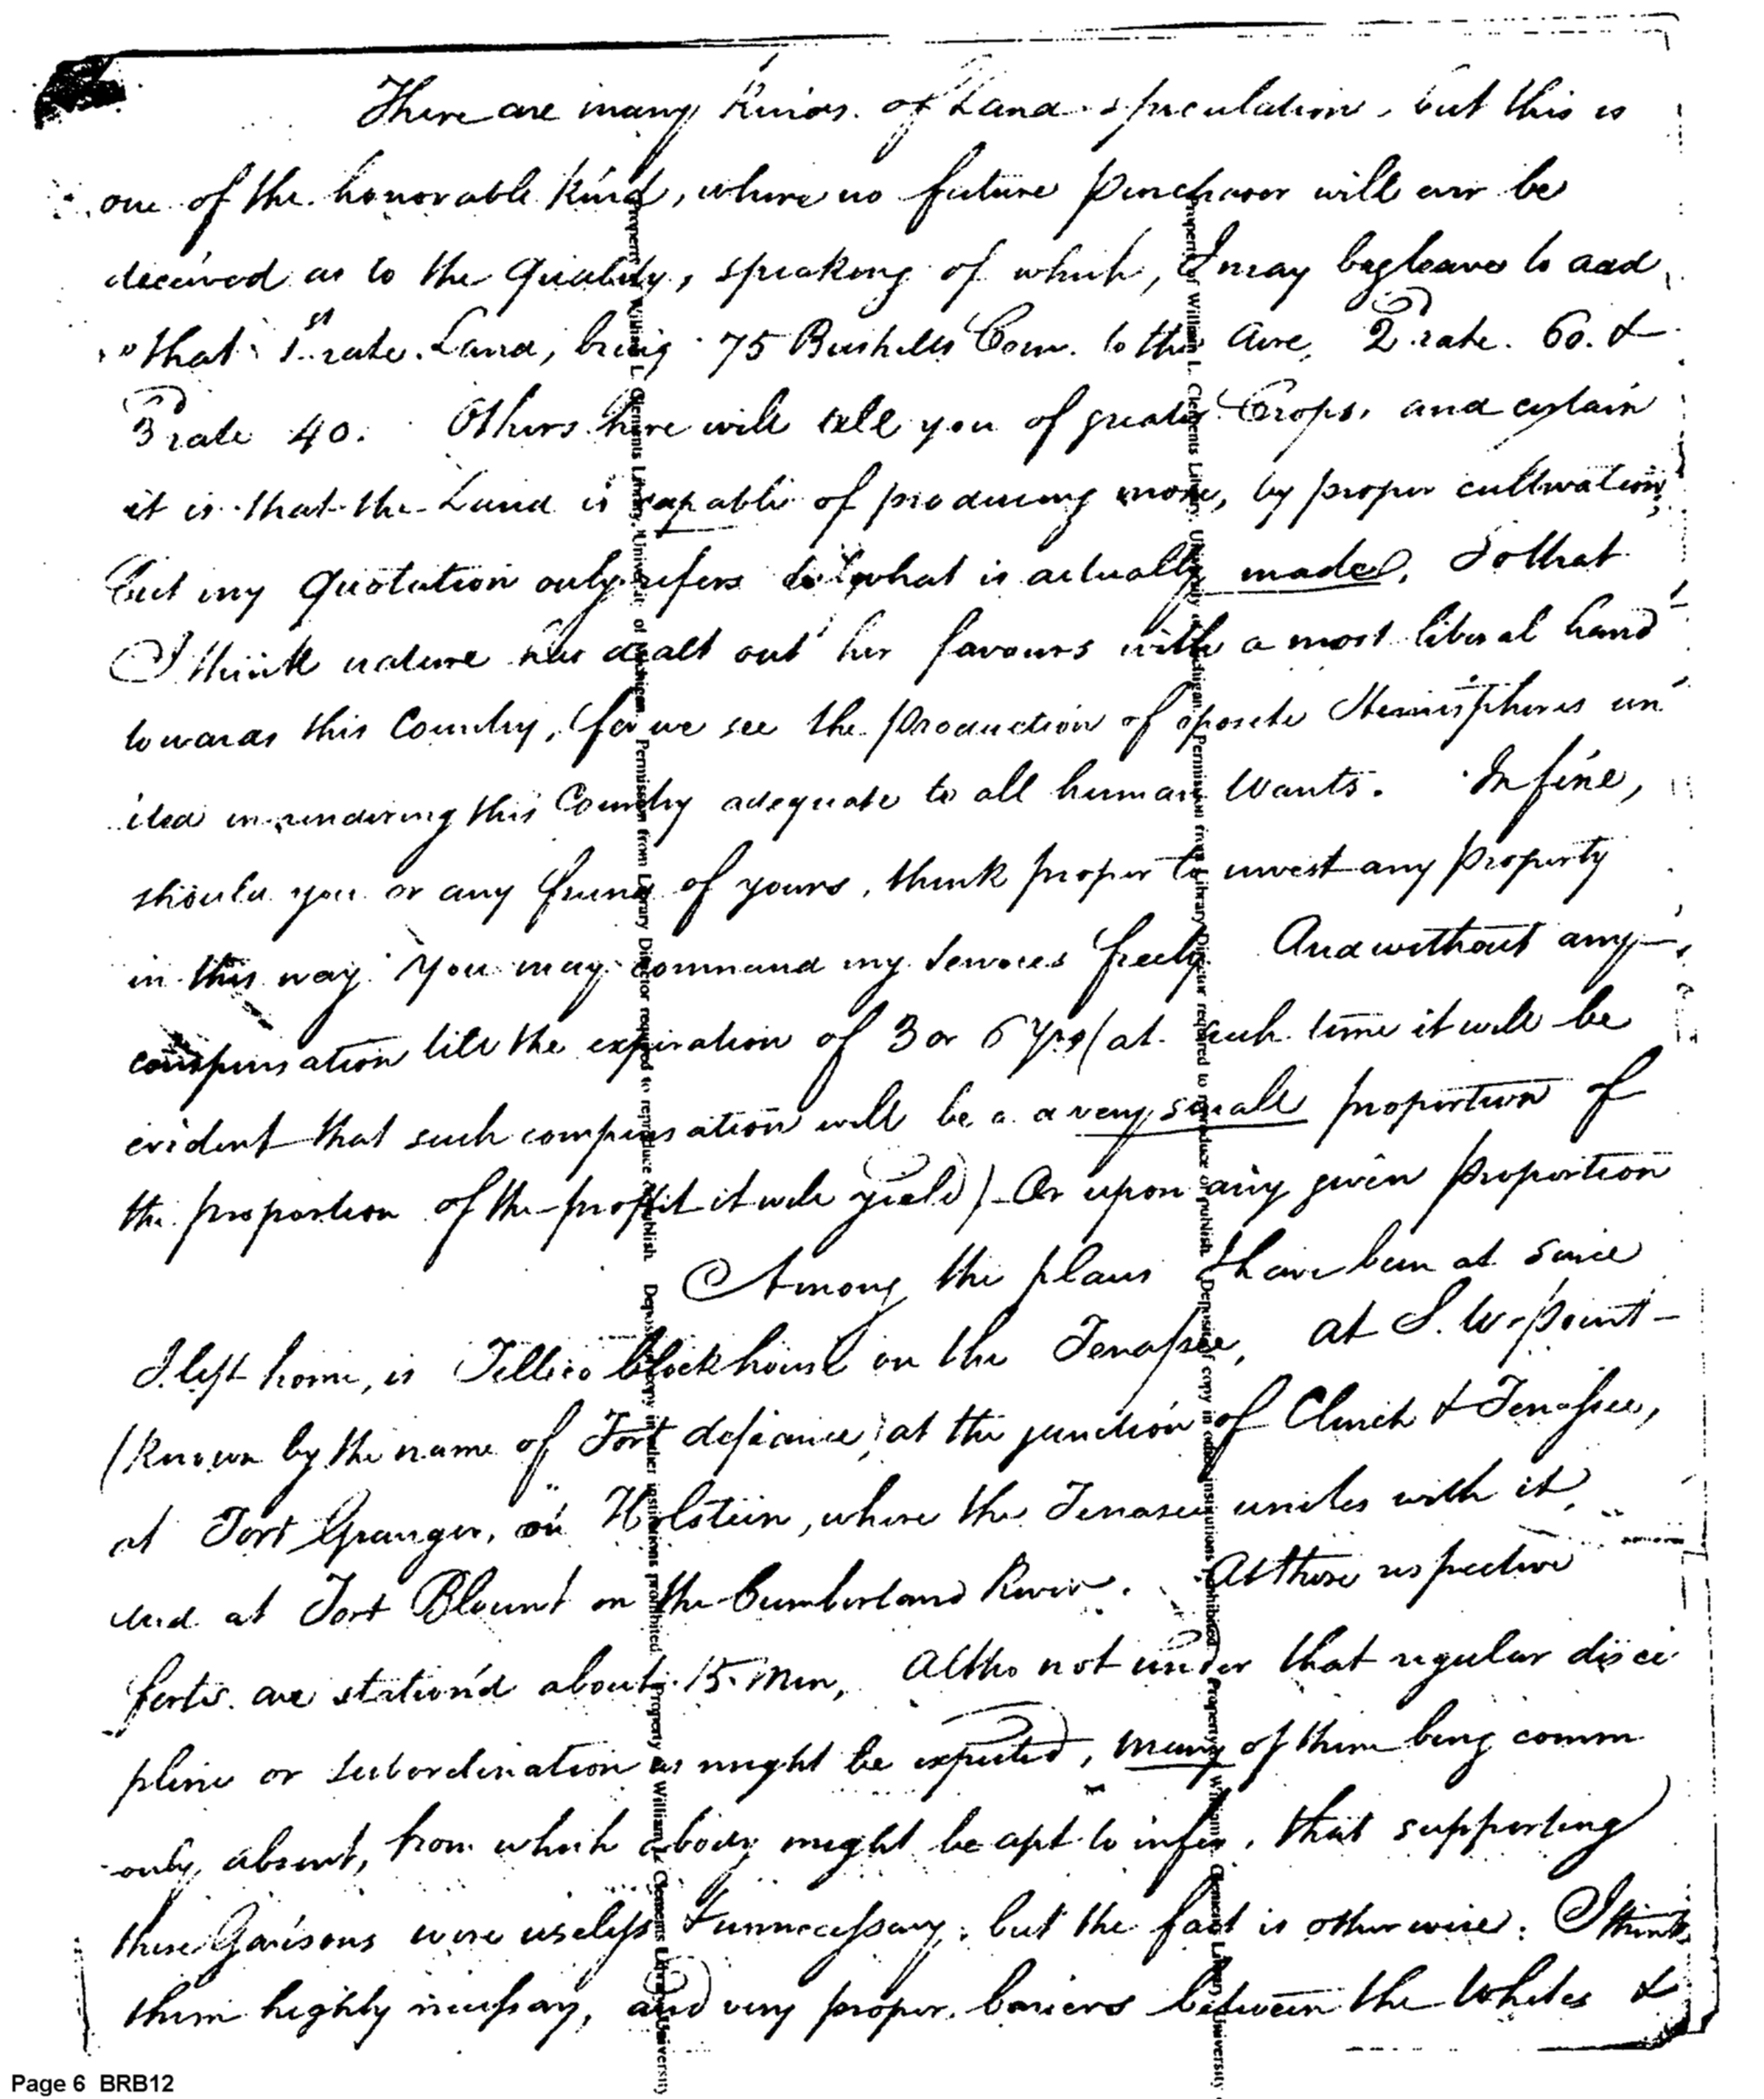 There are many Kinds of Land speculation, but this is
one of the honorable kind, where no future purchaser will ever be
deceived as to the Quality, speaking of which, I may beg leave to add
that 1st rate Land, bring 75 Bushells Corn to the Acre, 2d rate 60. &
3d rate 40. Others here will tell you of greater Crops, and certain
it is that the Land is capable of producing more, by proper cultivation,
but my Quotation only refers to what is actually made. So that
I think nature has dealt out her favours with a most liberal hand
towards this Country, for we see the production of oposite Hemispheres un
ited in rendering this Country adequate to all human Wants. In fine,
should you or any friend of yours, think proper to invest any property
in this way You may command my Services freely And without any
compensation till the expiration of 3 or 6 yrs (at such time it will be
evident that such compensation will be a a very small proportion of
the proportion of the profit it will yield) Or upon any given proportion
Among the plans I have been at since
I left home, is Tellico blockhouse on the Tenassee, at S. W. point
(known by the name of Fort defiance) at the junction of Clinch & Tenassee,
at Fort Granger, on Holstein, where the Tenasee unites with it,
and at Fort Blount on the Cumberland River. At these respective
forts are station'd about 15 Men, Altho not under that regular disci
pline or subordination as might be expected, many of them being comm
only absent, from which a body might be apt to infer, that supporting
these Garisons were useless & unnecessary, but the fact is otherwise: I think
them highly necessary, and very proper bariers between the Whites &
Property of William L. Clements Library, University of Michigan. Permission from Library Director required to reproduce or publish. Deposit of copy in other institutions prohibited. Property of William L. Clements Library, University
Property of William L. Clements Library, University of Michigan. Permission from Library Director required to reproduce or publish. Deposit of copy in other institutions prohibited. Property of William L. Clements Library, University
Page 6 BRB12